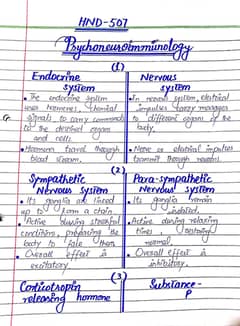 HND-507
Psychoneuroimmunology
(1)
Endocrine system
Nervous system
• The endocrine system uses hormones, chemical signals to carry commands to the desired organs and cells.
• In nervous system, electrical impulses carry messages to different organs of the body.
• Hormones travel through blood stream.
• Nerve or electrical impulses transmit through neurons.
(2)
Sympathetic Nervous system
Para-sympathetic Nervous system
• Its ganglia are linked up to form a chain.
• Its ganglia remain isolated.
• Active during stressful conditions, preparing the body to face them.
• Active during relaxing times, restoring normal.
• Overall effect is excitatory.
• Overall effect is inhibitory.
(3)
Corticotropin releasing hormone
Substance-P